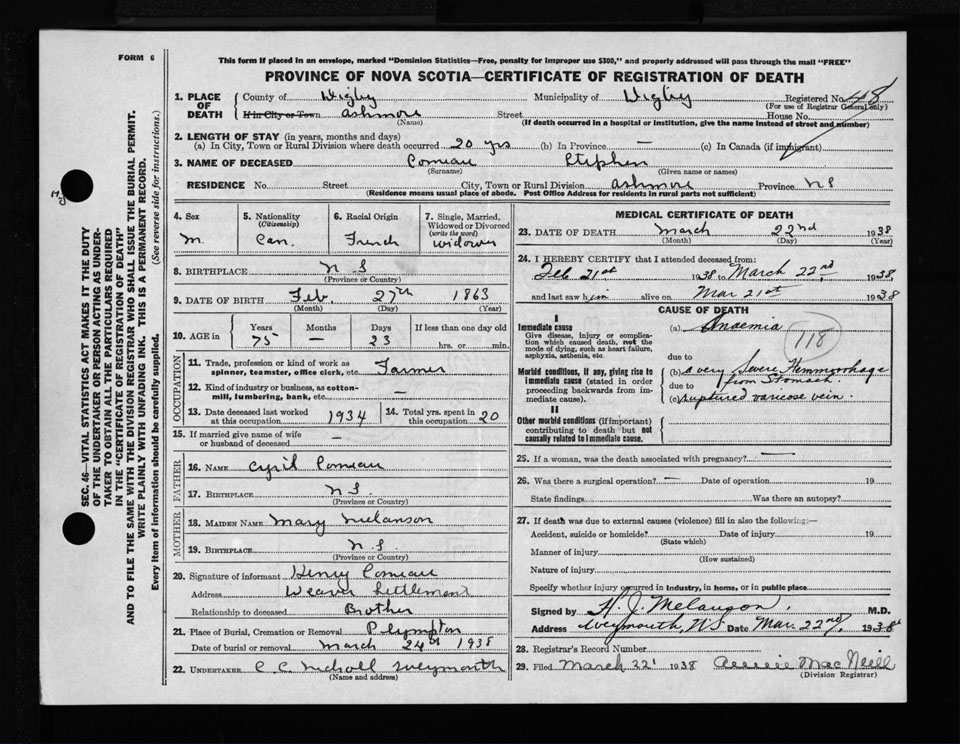 FORM 6
This form if placed in an envelope, marked "Dominion Statistics—Free, penalty for improper use $300," and properly addressed will pass through the mail "FREE"
PROVINCE OF NOVA SCOTIA—CERTIFICATE OF REGISTRATION OF DEATH
1. PLACE OF DEATH
County of Digby Municipality of Digby Registered No. 48
(For use of Registrar General only)
If in City or Town Ashmore Street House No.
(Name) (If death occurred in a hospital or institution, give the name instead of street and number)
2. LENGTH OF STAY (in years, months and days)
(a) In City, Town or Rural Division where death occurred 20 yrs (b) In Province — (c) In Canada (if immigrant)
3. NAME OF DECEASED Comeau Stephen
(Surname) (Given name or names)
RESIDENCE No. Street City, Town or Rural Division Ashmore Province N S
(Residence means usual place of abode. Post Office Address for residents in rural parts not sufficient)
4. Sex
M.
5. Nationality
(Citizenship)
Can.
6. Racial Origin
French
7. Single, Married,
Widowed or Divorced
(write the word)
widower
8. BIRTHPLACE N. S
(Province or Country)
9. DATE OF BIRTH Feb. 27th 1863
(Month) (Day) (Year)
10. AGE in
Years Months Days If less than one day old
75 — 23 hrs. or min.
OCCUPATION
11. Trade, profession or kind of work as
spinner, teamster, office clerk, etc. Farmer
12. Kind of industry or business, as cotton-
mill, lumbering, bank, etc. —
13. Date deceased last worked
at this occupation 1934
14. Total yrs. spent in
this occupation 20
15. If married give name of wife
or husband of deceased —
FATHER
16. NAME Cyril Comeau
17. BIRTHPLACE N S.
(Province or Country)
MOTHER
18. MAIDEN NAME Mary Melanson
19. BIRTHPLACE N. S.
(Province or Country)
20. Signature of informant Henry Comeau
Address Weaver Settlement
Relationship to deceased Brother
21. Place of Burial, Cremation or Removal Plympton
Date of burial or removal March 24th 1938
22. UNDERTAKER C. C. Nicholl Weymouth
(Name and address)
MEDICAL CERTIFICATE OF DEATH
23. DATE OF DEATH March 22nd 1938
(Month) (Day) (Year)
24. I HEREBY CERTIFY that I attended deceased from:
Feb 21st 1938 to March 22nd, 1938,
and last saw him alive on Mar 21st 1938
CAUSE OF DEATH
I
Immediate cause
Give disease, injury or complica-
tion which caused death, not the
mode of dying, such as heart failure,
asphyxia, asthenia, etc.
(a) Anaemia
118
due to
Morbid conditions, if any, giving rise to
immediate cause (stated in order
proceeding backwards from im-
mediate cause).
(b) a very Severe Hemmorrhage
due to from Stomach.
(c) ruptured varicose vein.
II
Other morbid conditions (if important)
contributing to death but not
causally related to immediate cause.
25. If a woman, was the death associated with pregnancy? —
26. Was there a surgical operation? — Date of operation 19
State findings Was there an autopsy?
27. If death was due to external causes (violence) fill in also the following:—
Accident, suicide or homicide? Date of injury 19
(State which)
Manner of injury
(How sustained)
Nature of injury
Specify whether injury occurred in industry, in home, or in public place
Signed by H. J. Melançon, M.D.
Address Weymouth, N.S Date Mar. 22nd, 1938
28. Registrar's Record Number
29. Filed March 22' 1938 Annie MacNeill
(Division Registrar)
SEC. 46—VITAL STATISTICS ACT MAKES IT THE DUTY
OF THE UNDERTAKER OR PERSON ACTING AS UNDER-
TAKER TO OBTAIN ALL THE PARTICULARS REQUIRED
IN THE "CERTIFICATE OF REGISTRATION OF DEATH"
AND TO FILE THE SAME WITH THE DIVISION REGISTRAR WHO SHALL ISSUE THE BURIAL PERMIT.
WRITE PLAINLY WITH UNFADING INK. THIS IS A PERMANENT RECORD.
Every item of information should be carefully supplied. (See reverse side for instructions.)